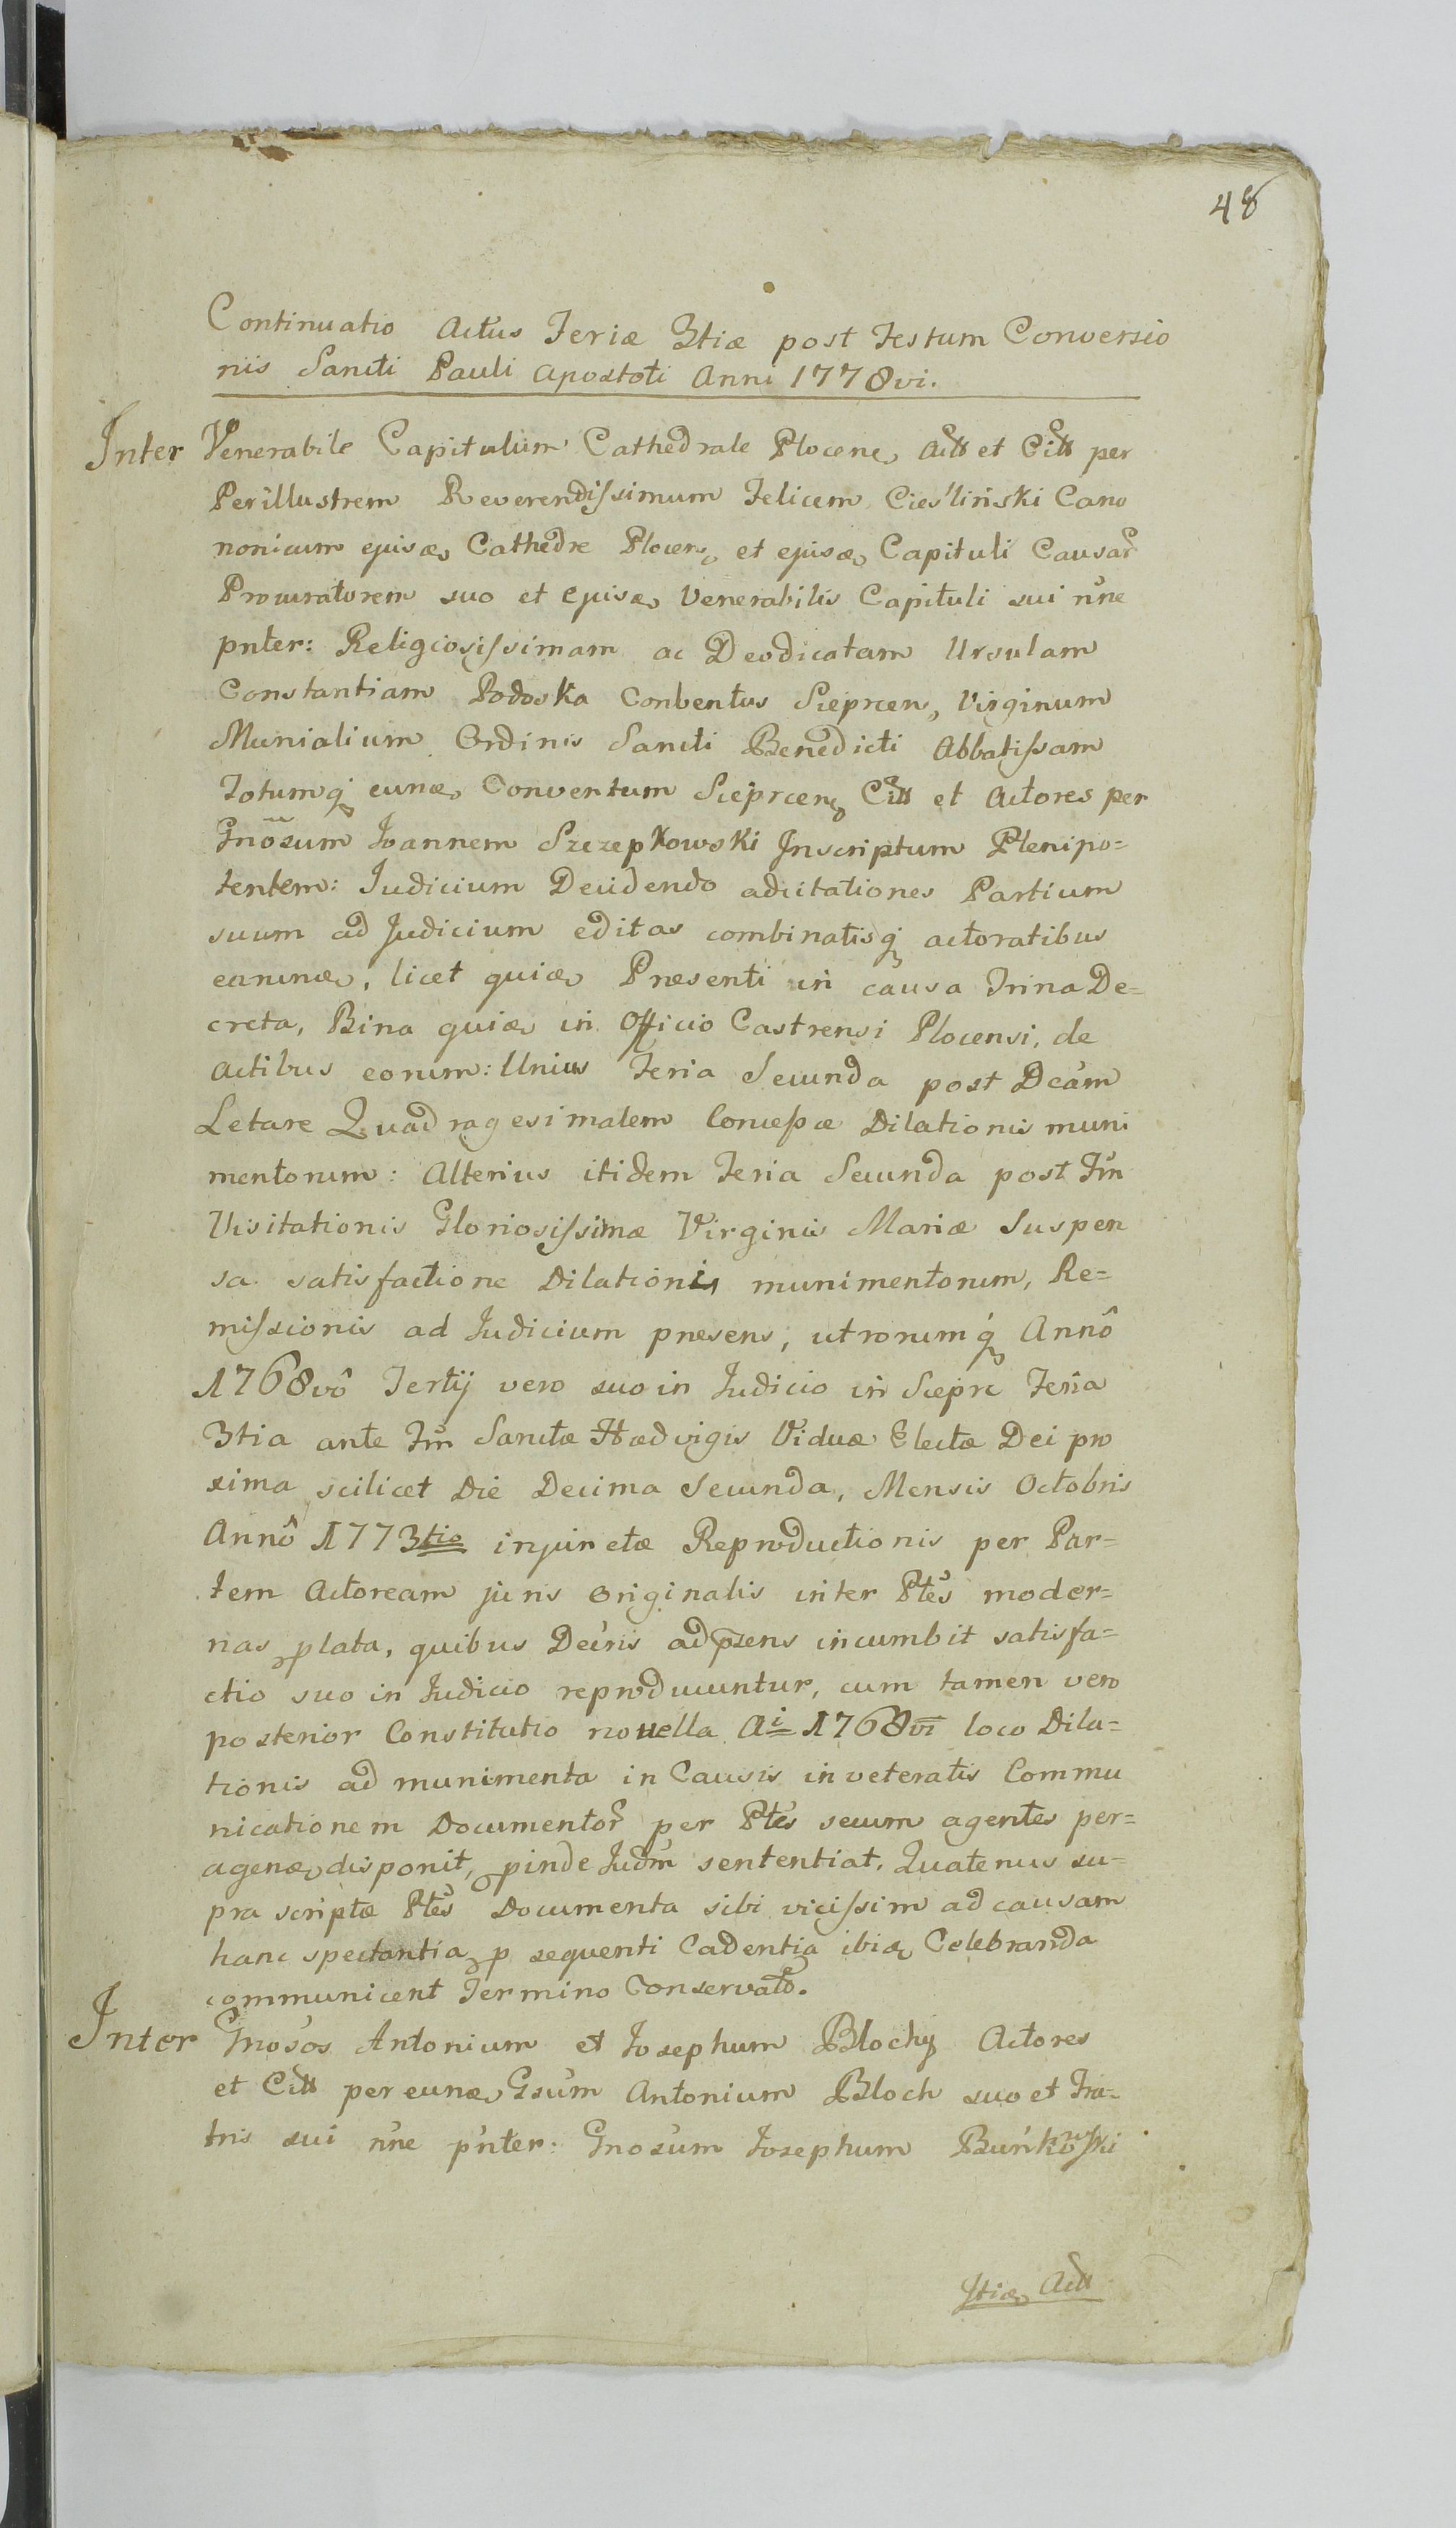 48
Continuatio Actus Feriæ 3tiæ post Festum Conversio
nis Sancti Pauli Apostoli Anni 1778vi.
Inter Venerabile Capitulum Cathedrale Plocen, Act et Citt per
Perillustrem Reverendissimum Felicem Cieśliński Cano
nonicum ejusæ, Cathedre Plocen, et ejusæ, Capituli Causar
Procuratorem suo et ejusæ, Venerabilis Capituli sui nne
pnter: Religiosissimam ac Deodicatam Ursulam
Constantiam Podoska Conventus Sieprcen, Virginum
Munialium Ordinis Sancti Benedicti Abbatissam
Totumq eunæ, Conventum Sieprcen, Citt et Actores per
Gnõsum Joannem Szczepkowski Inscriptum Plenipo=
tentem: Judicium Decidendo adcitationes Partium
suum ad Judicium editas combinatisq actoratibus
earumæ, licet quiæ, Præsenti in causa Trina De=
creta, Bina quiæ, in Officio Castrensi Plocensi, de
actibus eorum: Unius Feria Secunda post Dcam
Letare Quadragesimalem Concessæ Dilationis muni
mentorum: Alterius itidem Feria Secunda post Fm
Visitationis Gloriosissimæ Virginis Mariæ Suspen
sa satisfactione Dilationis munimentorum, Re=
missionis ad Judicium præsens, utrorumq Annô
1768vô Tertij vero suo in Judicio in Siepre Feria
3tia ante Fm Sanctæ Hædvigis Viduæ Electæ Dei pro
xima scilicet Die Decima Secunda, Mensis Octobris
Annô 1773tio injunctæ Reproductionis per Par=
tem Actoream juris originalis inter Ptes moder=
nas plata, quibus Decris ad psens incumbit satisfa=
ctio suo in Judicio reproducuntur, cum tamen vero
posterior Constitutio novella Ai 1768vi loco Dila=
tionis ad munimenta in Causis inveteratis Commu
nicationem Documentor per Ptes secum agentes per=
agenæ, disponit, pinde Judm sententiat. Quatenus su=
pra scriptæ Ptes Documenta sibi vicissim ad causam
hanc spectantia p sequenti Cadentia ibiæ, Celebranda
communicent Termino Conservato.
Inter Gnosos Antonium et Josephum Blochy Actores
et Citt per eunæ, Gsum Antonium Bloch suo et Fra=
tris sui nne pnter: Gnosum Josephum Buńkowski
Itiæ, Act